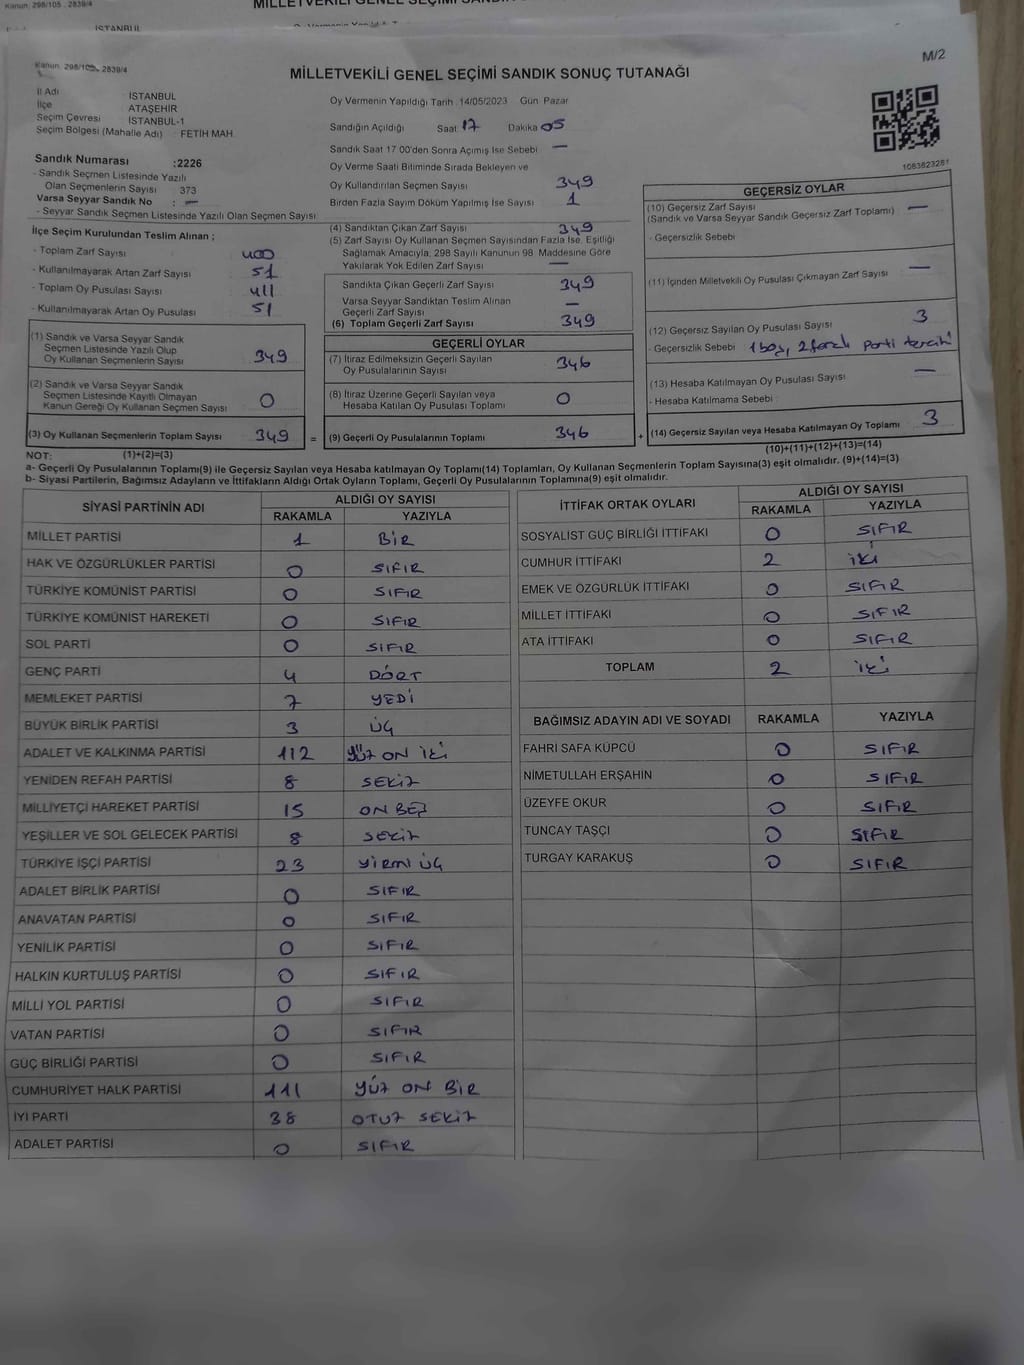 Kanun: 298/105 - 2839/4
İSTANBUL
Kanun: 298/105, 2839/4
M/2
MİLLETVEKİLİ GENEL SEÇİMİ SANDIK SONUÇ TUTANAĞI
İl Adı İSTANBUL
İlçe ATAŞEHİR
Seçim Çevresi İSTANBUL-1
Seçim Bölgesi (Mahalle Adı) : FETİH MAH.
Sandık Numarası :2226
- Sandık Seçmen Listesinde Yazılı
Olan Seçmenlerin Sayısı : 373
Varsa Seyyar Sandık No : —
- Seyyar Sandık Seçmen Listesinde Yazılı Olan Seçmen Sayısı
İlçe Seçim Kurulundan Teslim Alınan ;
- Toplam Zarf Sayısı 400
- Kullanılmayarak Artan Zarf Sayısı 51
- Toplam Oy Pusulası Sayısı 411
- Kullanılmayarak Artan Oy Pusulası 51
(1) Sandık ve Varsa Seyyar Sandık
Seçmen Listesinde Yazılı Olup
Oy Kullanan Seçmenlerin Sayısı 349
(2) Sandık ve Varsa Seyyar Sandık
Seçmen Listesinde Kayıtlı Olmayan
Kanun Gereği Oy Kullanan Seçmen Sayısı 0
(3) Oy Kullanan Seçmenlerin Toplam Sayısı 349 =
Oy Vermenin Yapıldığı Tarih :14/05/2023 Gün Pazar
Sandığın Açıldığı Saat 17 Dakika 05
Sandık Saat 17 00'den Sonra Açımış İse Sebebi —
Oy Verme Saati Bitiminde Sırada Bekleyen ve
Oy Kullandırılan Seçmen Sayısı 349
Birden Fazla Sayım Döküm Yapılmış İse Sayısı 1
(4) Sandıktan Çıkan Zarf Sayısı 349
(5) Zarf Sayısı Oy Kullanan Seçmen Sayısından Fazla İse, Eşitliği
Sağlamak Amacıyla, 298 Sayılı Kanunun 98. Maddesine Göre
Yakılarak Yok Edilen Zarf Sayısı —
Sandıkta Çıkan Geçerli Zarf Sayısı 349
Varsa Seyyar Sandıktan Teslim Alınan
Geçerli Zarf Sayısı —
(6) Toplam Geçerli Zarf Sayısı 349
GEÇERLİ OYLAR
(7) İtiraz Edilmeksizin Geçerli Sayılan
Oy Pusulalarının Sayısı 346
(8) İtiraz Üzerine Geçerli Sayılan veya
Hesaba Katılan Oy Pusulası Toplamı 0
(9) Geçerli Oy Pusulalarının Toplamı 346 +
1083623281
GEÇERSİZ OYLAR
(10) Geçersiz Zarf Sayısı —
(Sandık ve Varsa Seyyar Sandık Geçersiz Zarf Toplamı)
- Geçersizlik Sebebi
(11) İçinden Milletvekili Oy Pusulası Çıkmayan Zarf Sayısı —
(12) Geçersiz Sayılan Oy Pusulası Sayısı 3
- Geçersizlik Sebebi 1 boş, 2 farklı parti tercihi
(13) Hesaba Katılmayan Oy Pusulası Sayısı —
- Hesaba Katılmama Sebebi
(14) Geçersiz Sayılan veya Hesaba Katılmayan Oy Toplamı 3
NOT: (1)+(2)=(3) (10)+(11)+(12)+(13)=(14)
a- Geçerli Oy Pusulalarının Toplamı(9) ile Geçersiz Sayılan veya Hesaba katılmayan Oy Toplamı(14) Toplamları, Oy Kullanan Seçmenlerin Toplam Sayısına(3) eşit olmalıdır. (9)+(14)=(3)
b- Siyasi Partilerin, Bağımsız Adayların ve İttifakların Aldığı Ortak Oyların Toplamı, Geçerli Oy Pusulalarının Toplamına(9) eşit olmalıdır.
SİYASİ PARTİNİN ADI ALDIĞI OY SAYISI
RAKAMLA YAZIYLA
MİLLET PARTİSİ 1 BİR
HAK VE ÖZGÜRLÜKLER PARTİSİ 0 SIFIR
TÜRKİYE KOMÜNİST PARTİSİ 0 SIFIR
TÜRKİYE KOMÜNİST HAREKETİ 0 SIFIR
SOL PARTİ 0 SIFIR
GENÇ PARTİ 4 DÖRT
MEMLEKET PARTİSİ 7 YEDİ
BÜYÜK BİRLİK PARTİSİ 3 ÜÇ
ADALET VE KALKINMA PARTİSİ 112 YÜZ ON İKİ
YENİDEN REFAH PARTİSİ 8 SEKİZ
MİLLİYETÇİ HAREKET PARTİSİ 15 ON BEŞ
YEŞİLLER VE SOL GELECEK PARTİSİ 8 SEKİZ
TÜRKİYE İŞÇİ PARTİSİ 23 YİRMİ ÜÇ
ADALET BİRLİK PARTİSİ 0 SIFIR
ANAVATAN PARTİSİ 0 SIFIR
YENİLİK PARTİSİ 0 SIFIR
HALKIN KURTULUŞ PARTİSİ 0 SIFIR
MİLLİ YOL PARTİSİ 0 SIFIR
VATAN PARTİSİ 0 SIFIR
GÜÇ BİRLİĞİ PARTİSİ 0 SIFIR
CUMHURİYET HALK PARTİSİ 111 YÜZ ON BİR
İYİ PARTİ 38 OTUZ SEKİZ
ADALET PARTİSİ 0 SIFIR
İTTİFAK ORTAK OYLARI ALDIĞI OY SAYISI
RAKAMLA YAZIYLA
SOSYALİST GÜÇ BİRLİĞİ İTTİFAKI 0 SIFIR
CUMHUR İTTİFAKI 2 İKİ
EMEK VE ÖZGÜRLÜK İTTİFAKI 0 SIFIR
MİLLET İTTİFAKI 0 SIFIR
ATA İTTİFAKI 0 SIFIR
TOPLAM 2 İKİ
BAĞIMSIZ ADAYIN ADI VE SOYADI RAKAMLA YAZIYLA
FAHRİ SAFA KÜPCÜ 0 SIFIR
NİMETULLAH ERŞAHİN 0 SIFIR
ÜZEYFE OKUR 0 SIFIR
TUNCAY TAŞÇI 0 SIFIR
TURGAY KARAKUŞ 0 SIFIR